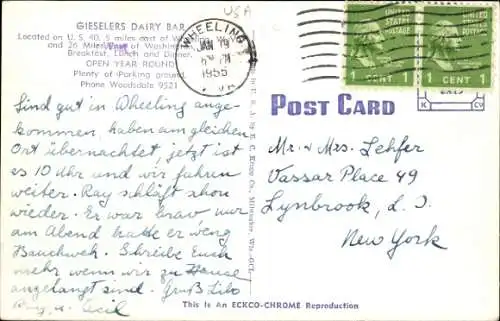 USA
GIESELERS DAIRY BAR
Located on U.S. 40, 5 miles east of Wheeling
and 26 Miles West of Washington
Breakfast, Lunch and Dinner
OPEN YEAR ROUND
Plenty of Parking around
Phone Woodsdale 9521
WHEELING
JAN 19
1955
W. VA.
UNITED STATES POSTAGE
1 CENT 1
UNITED STATES POSTAGE
1 CENT 1
POST CARD
Sind gut in Wheeling ange-
kommen, haben am gleichen
Ort übernachtet, jetzt ist
es 10 Uhr und wir fahren
weiter. Ray schläft schon
wieder. Er war brav nur
am Abend hatte er weng
Bauchweh. Schreibe Euch
mehr wenn wir zu Hause
angelangt sind. Gruß Lilo
Ray u. Cecil
Mr. & Mrs. Lehfer
Vassar Place 49
Lynbrook, L. I.
New York
This Is An ECKCO-CHROME Reproduction